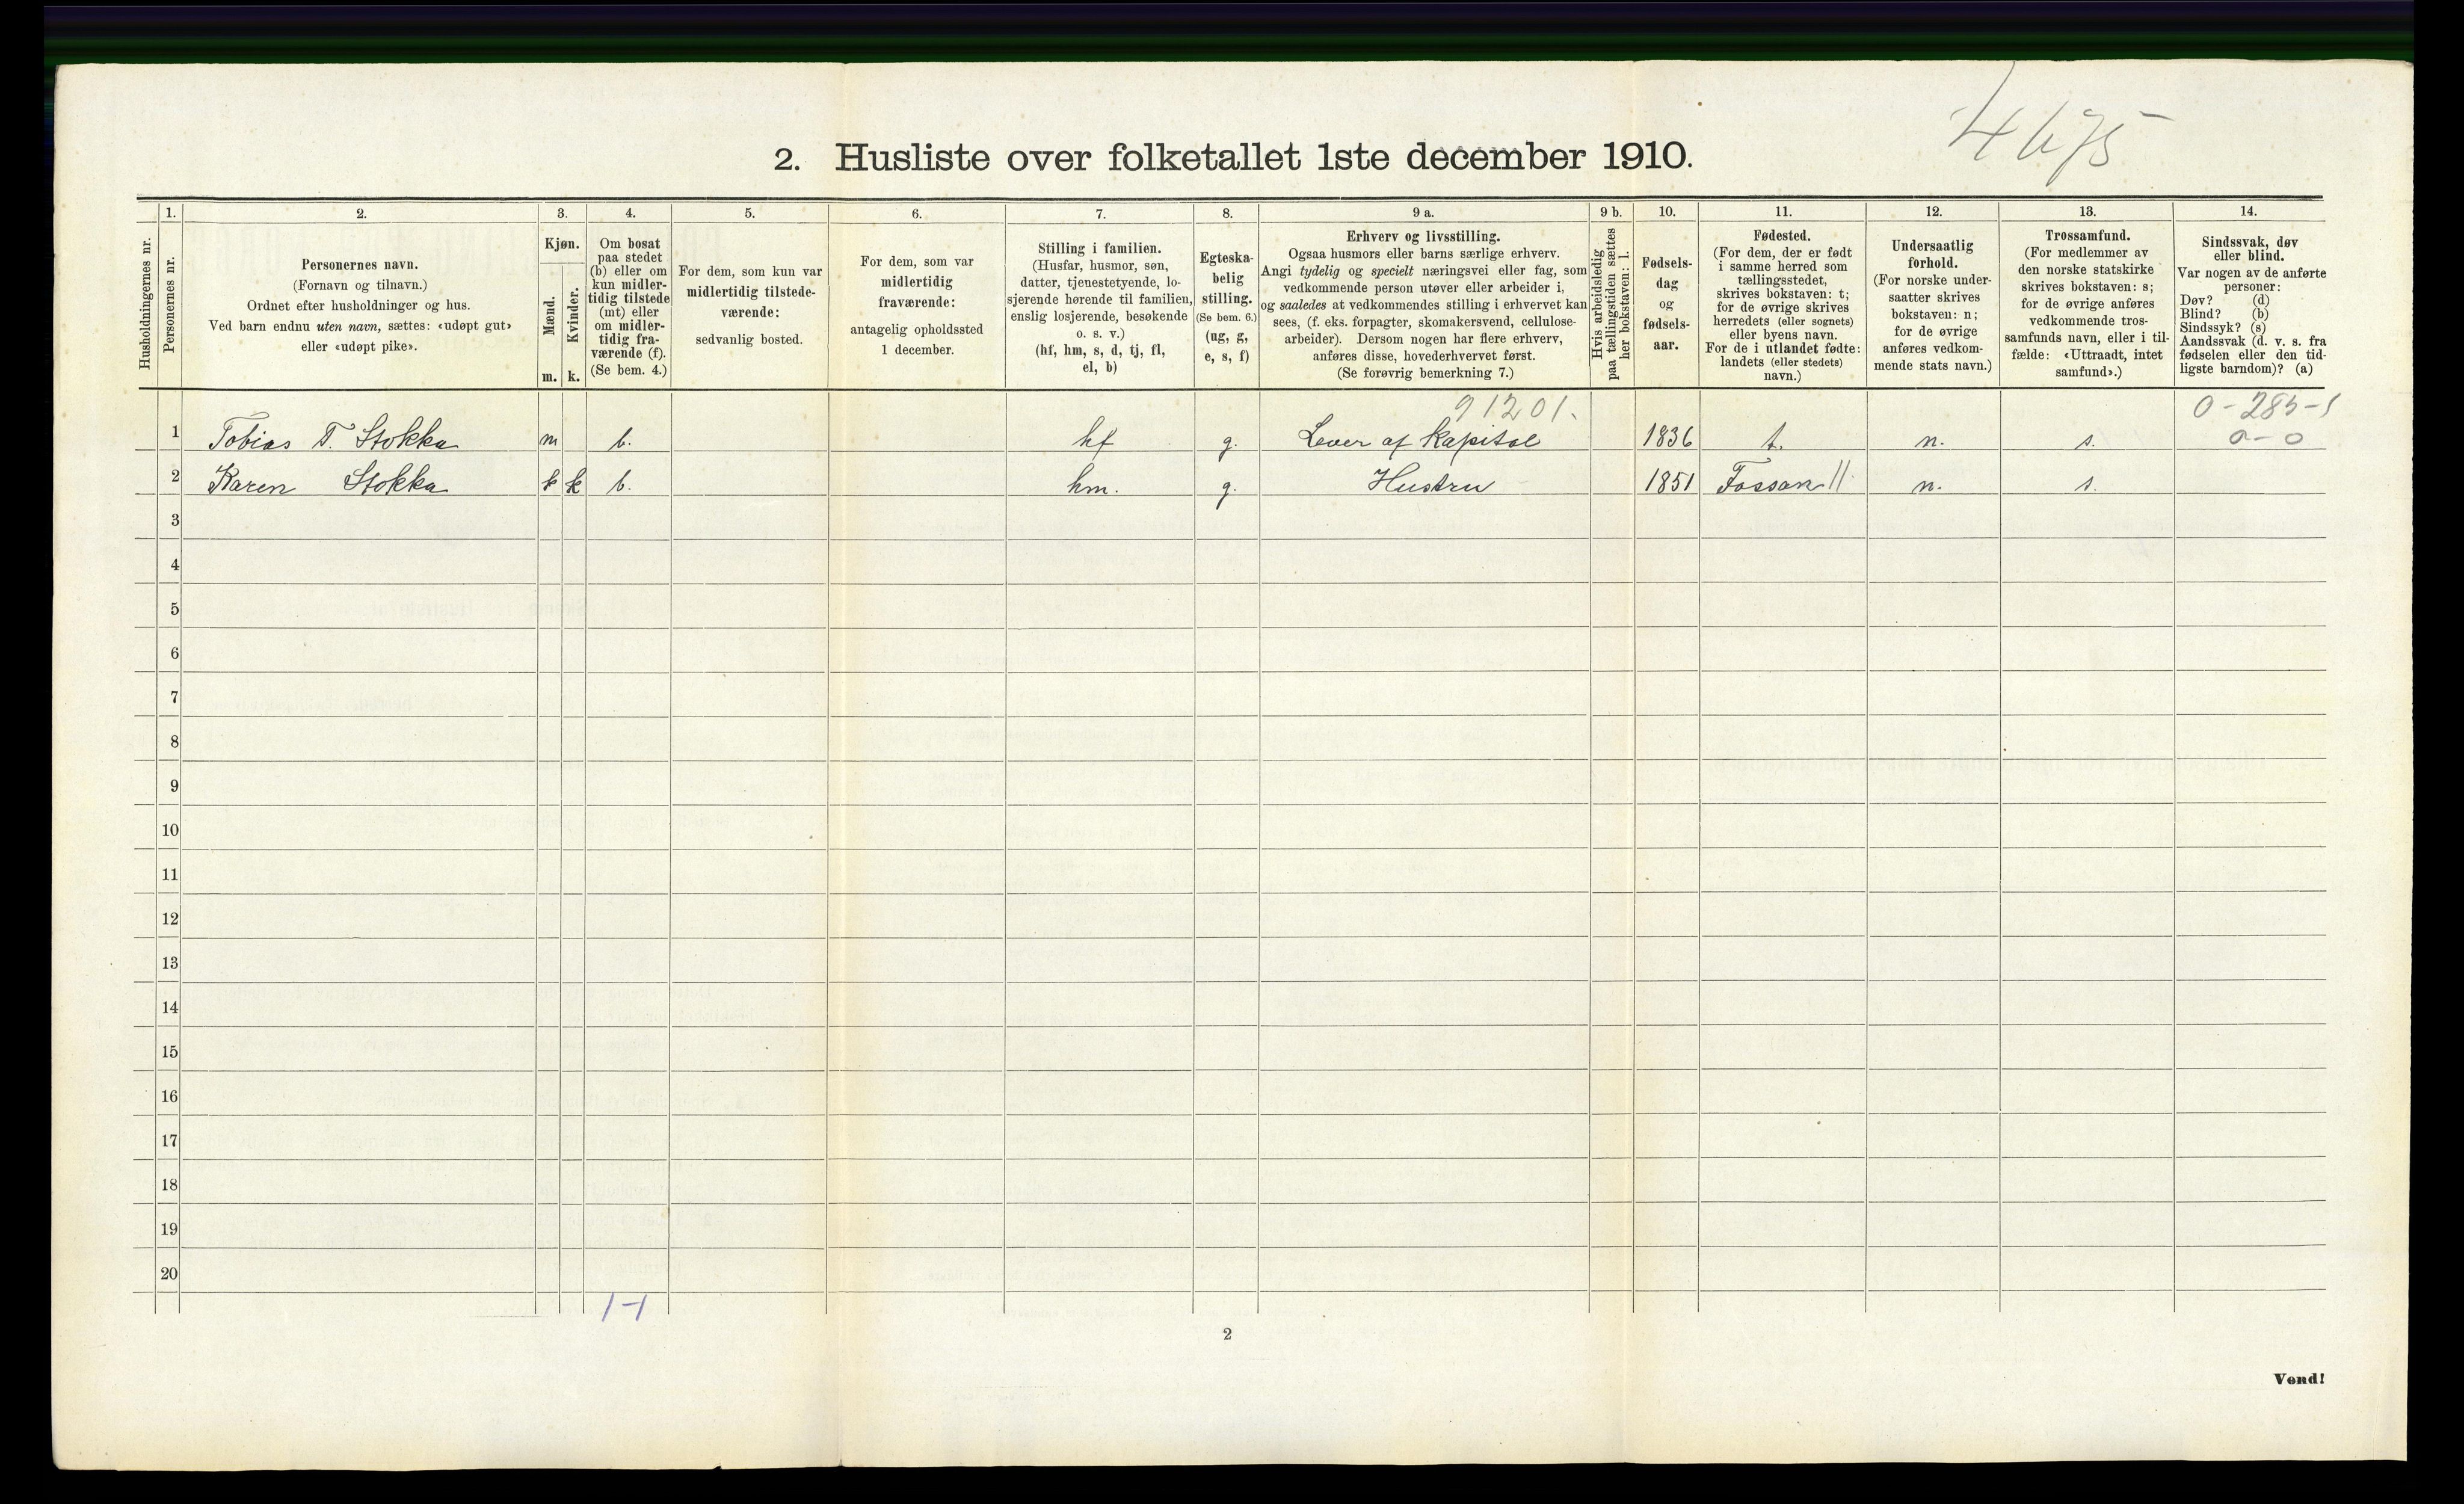 4675
2. Husliste over folketallet 1ste december 1910.
Husholdningernes nr.
1.
Personernes nr.
2.
Personernes navn.
(Fornavn og tilnavn.)
Ordnet efter husholdninger og hus.
Ved barn endnu uten navn, sættes: «udøpt gut»
eller «udøpt pike».
3.
Kjøn.
Mænd.
Kvinder.
m. k.
4.
Om bosat
paa stedet
(b) eller om
kun midler-
tidig tilstede
(mt) eller
om midler-
tidig fra-
værende (f).
(Se bem. 4.)
5.
For dem, som kun var
midlertidig tilstede-
værende:
sedvanlig bosted.
6.
For dem, som var
midlertidig
fraværende:
antagelig opholdssted
1 december.
7.
Stilling i familien.
(Husfar, husmor, søn,
datter, tjenestetyende, lo-
sjerende hørende til familien,
enslig losjerende, besøkende
o. s. v.)
(hf, hm, s, d, tj, fl,
el, b)
8.
Egteska-
belig
stilling.
(Se bem. 6.)
(ug, g,
e, s, f)
9 a.
Erhverv og livsstilling.
Ogsaa husmors eller barns særlige erhverv.
Angi tydelig og specielt næringsvei eller fag, som
vedkommende person utøver eller arbeider i,
og saaledes at vedkommendes stilling i erhvervet kan
sees, (f. eks. forpagter, skomakersvend, cellulose-
arbeider). Dersom nogen har flere erhverv,
anføres disse, hovederhvervet først.
(Se forøvrig bemerkning 7.)
9 b.
Hvis arbeidsledig
paa tællingstiden sættes
her bokstaven: l.
10.
Fødsels-
dag
og
fødsels-
aar.
11.
Fødested.
(For dem, der er født
i samme herred som
tællingsstedet,
skrives bokstaven: t;
for de øvrige skrives
herredets (eller sognets)
eller byens navn.
For de i utlandet fødte:
landets (eller stedets)
navn.)
12.
Undersaatlig
forhold.
(For norske under-
saatter skrives
bokstaven: n;
for de øvrige
anføres vedkom-
mende stats navn.)
13.
Trossamfund.
(For medlemmer av
den norske statskirke
skrives bokstaven: s;
for de øvrige anføres
vedkommende tros-
samfunds navn, eller i til-
fælde: «Uttraadt, intet
samfund».)
14.
Sindssvak, døv
eller blind.
Var nogen av de anførte
personer:
Døv? (d)
Blind? (b)
Sindssyk? (s)
Aandssvak (d. v. s. fra
fødselen eller den tid-
ligste barndom)? (a)
91201. 0-285-1
1 Tobias T. Stokka m b. hf g. Lever af kapital 1836 t. n. s. 0-0
2 Karen Stokka k k b. hm. g. Hustru 1851 Fossan 11 n. s.
3
4
5
6
7
8
9
10
11
12
13
14
15
16
17
18
19
20
1-1
2
Vend!